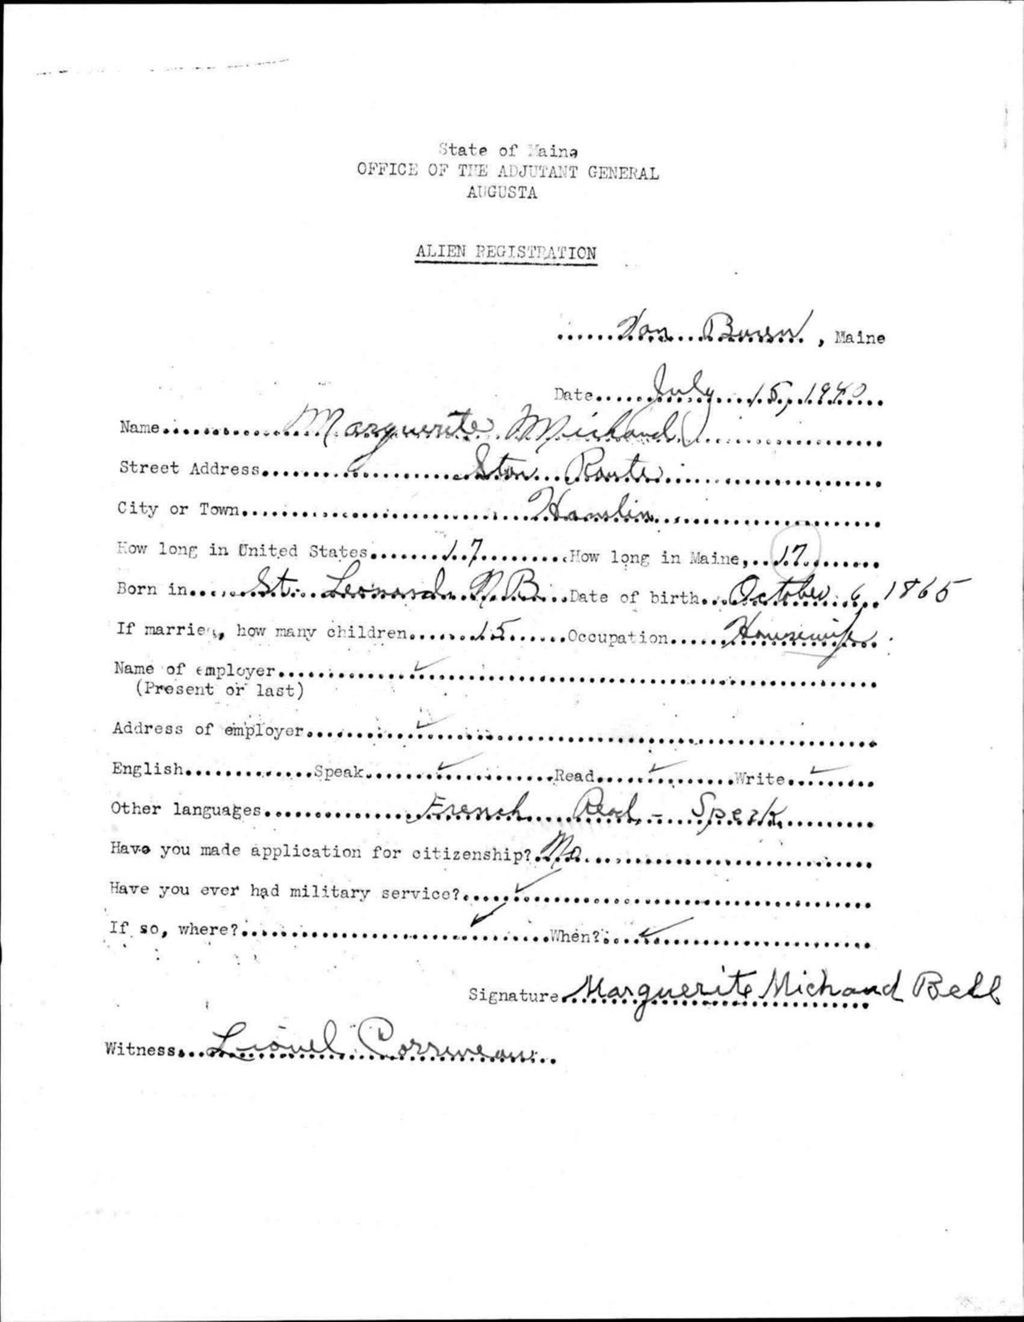 State of Maine
OFFICE OF THE ADJUTANT GENERAL
AUGUSTA
ALIEN REGISTRATION
Van Buren, Maine
Date July 15, 1940
Name Marguerite Michaud
Street Address Star Route
City or Town Hamlin
How long in United States 17 How long in Maine, 17
Born in St. Leonard N B Date of birth October 6, 1865
If married, how many children 15 Occupation Housewife
Name of employer ✓
(Present or last)
Address of employer ✓
English Speak ✓ Read ✓ Write ✓
Other languages French Read - Speak
Have you made application for citizenship? No
Have you ever had military service? ✓
If so, where? ✓ When? ✓
Signature Marguerite Michaud Bell
Witness Lionel Corriveau